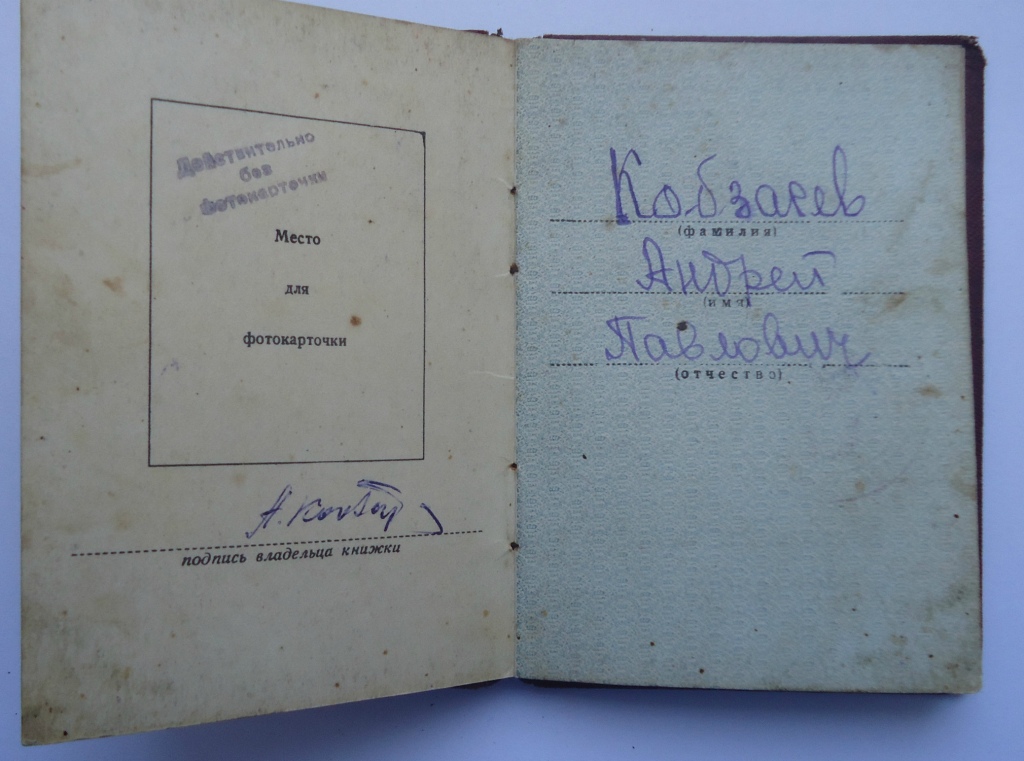 Действительно
без
фотокарточки
Место
для
фотокарточки
подпись владельца книжки
Кобзаев
(фамилия)
Андрей
(имя)
Павлович
(отчество)